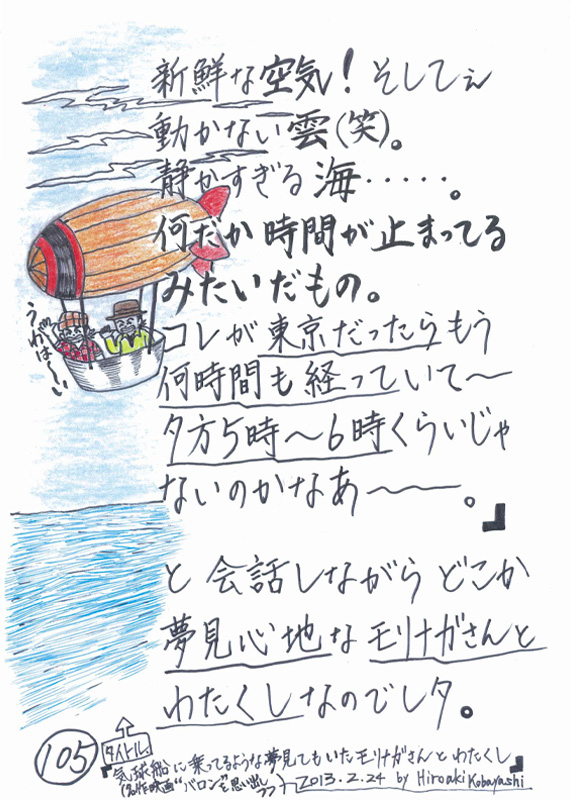 新鮮な空気！そしてぇ
動かない雲(笑)。
静かすぎる海・・・・・。
何だか時間が止まってる
みたいだもの。
コレが東京だったらもう
何時間も経っていて〜
夕方5時〜6時くらいじゃ
ないのかなあ〜〜。』
うわは〜い
と会話しながらどこか
夢見心地なモリナガさんと
わたくしなのでしタ。
105
タイトル
『気球船に乗ってるような夢見てもいたモリナガさんとわたくし』
(名作映画“バロン”を思い出し
2013.2.24 by Hiroaki Kobayashi